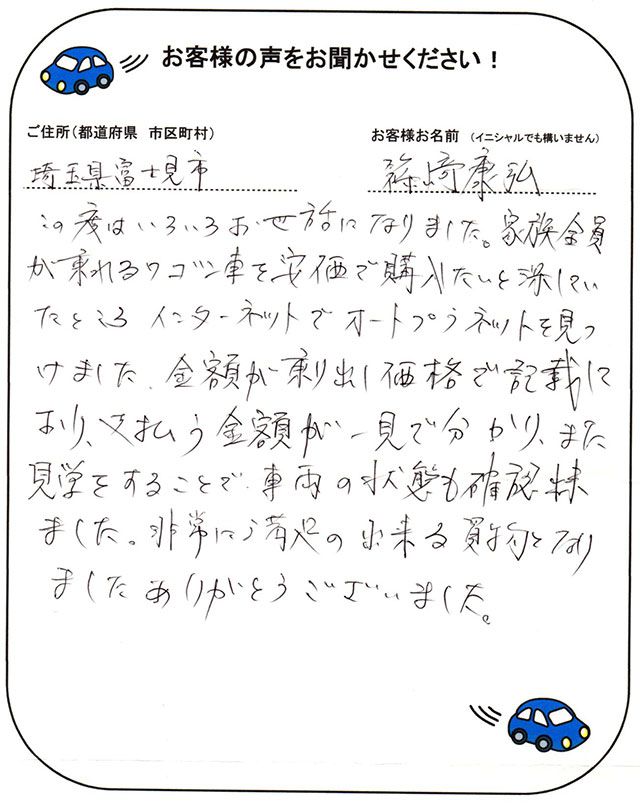 お客様の声をお聞かせください！
ご住所(都道府県 市区町村)
お客様お名前 (イニシャルでも構いません)
埼玉県富士見市
篠崎康弘
この度はいろいろお世話になりました。家族全員
が乗れるワゴン車を安価で購入したいと探してい
たところ インターネットでオートプラネットを見つ
けました。金額が乗り出し価格で記載して
おり、支払う金額が一見で分かり、また
見学をすることで、車両の状態も確認出来
ました。非常に満足の出来る買物となり
ましたありがとうございました。